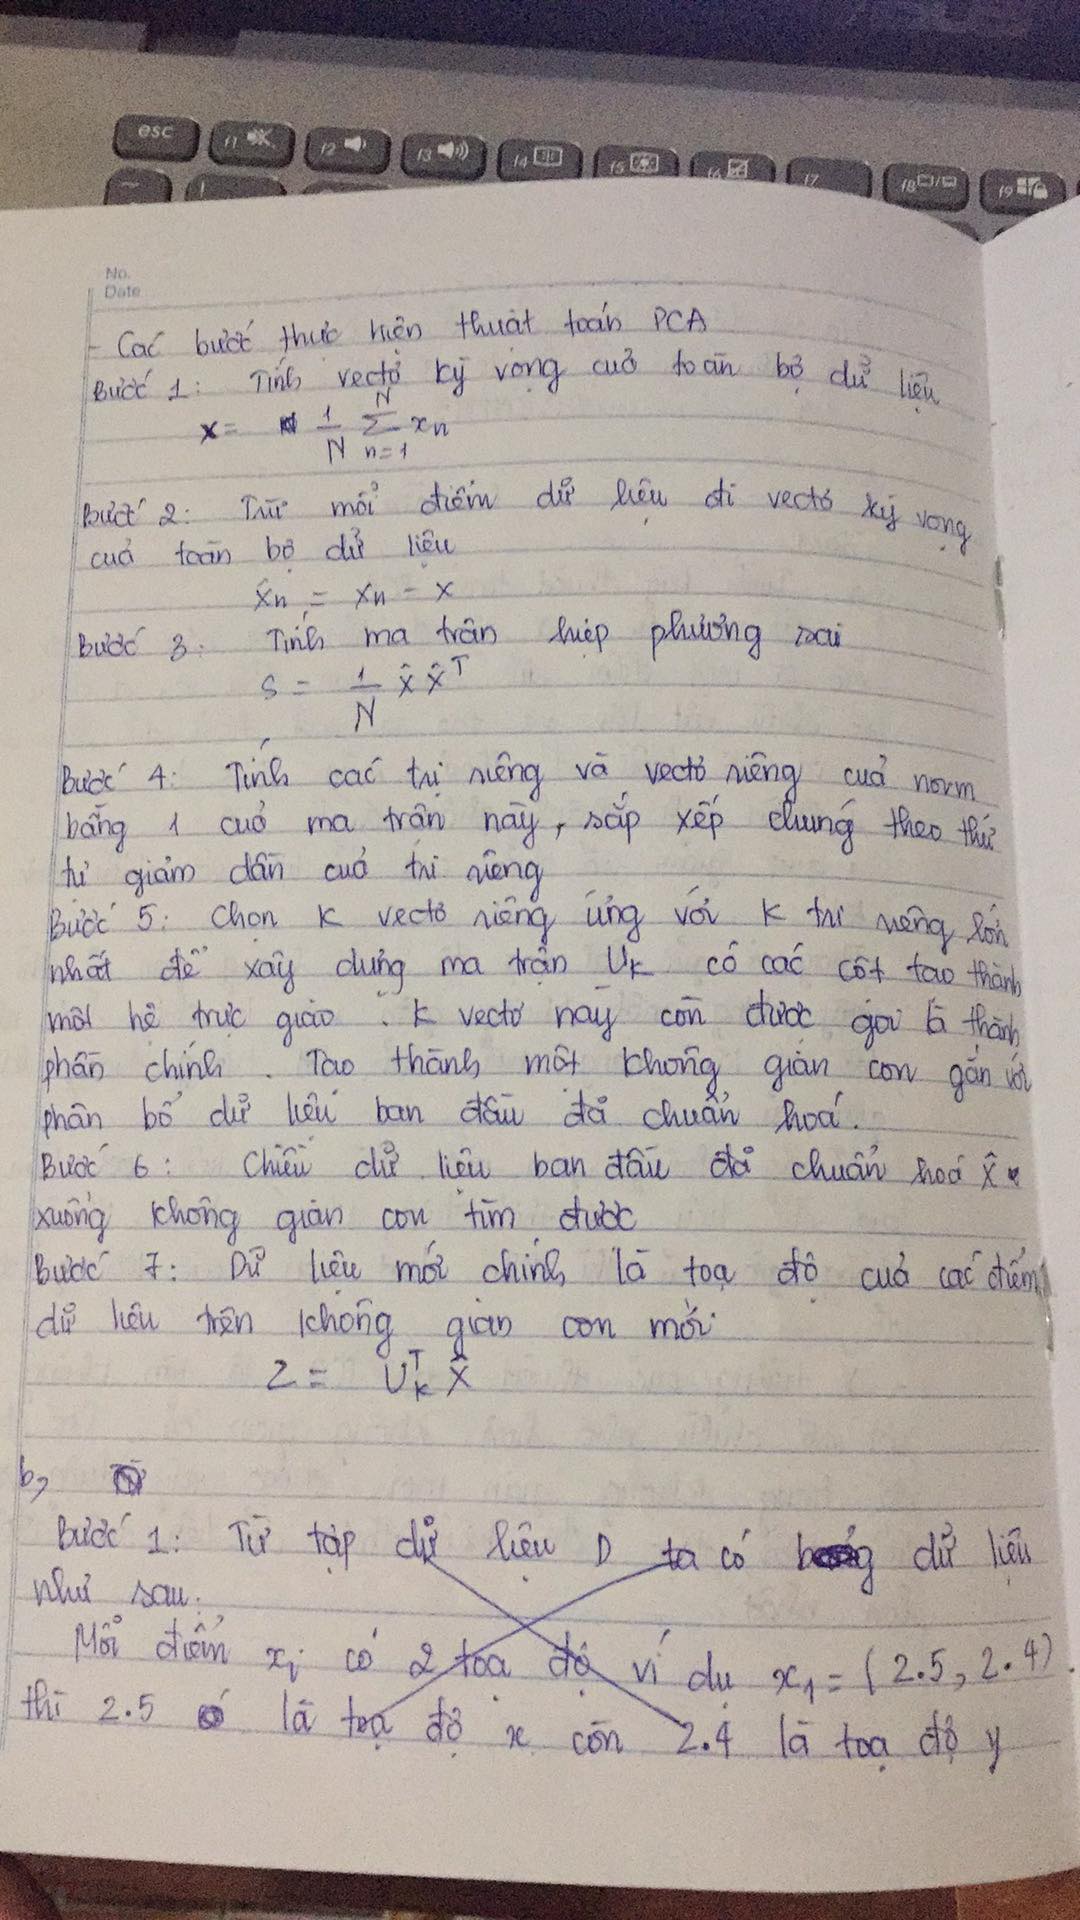 esc f1 f2 f3 f4 f5 f6 f7 f8 f9
No.
Date
- Các bước thực hiện thuật toán PCA
Bước 1: Tính vectơ kỳ vọng của toàn bộ dữ liệu
x = 1/N Σ_{n=1}^{N} xn
Bước 2: Trừ mỗi điểm dữ liệu đi vectơ kỳ vọng
của toàn bộ dữ liệu
x̂n = xn - x
Bước 3: Tính ma trận hiệp phương sai
S = 1/N X̂ X̂^T
Bước 4: Tính các trị riêng và vectơ riêng của norm
bằng 1 của ma trận này, sắp xếp chúng theo thứ
tự giảm dần của trị riêng
Bước 5: Chọn K vectơ riêng ứng với K trị riêng lớn
nhất để xây dựng ma trận U_K có các cột tạo thành
một hệ trực giao. K vectơ này còn được gọi là thành
phần chính. Tạo thành một không gian con gần với
phân bố dữ liệu ban đầu đã chuẩn hoá.
Bước 6: Chiếu dữ liệu ban đầu đã chuẩn hoá X̂
xuống không gian con tìm được
Bước 7: Dữ liệu mới chính là toạ độ của các điểm
dữ liệu trên không gian con mới
Z = U_K^T X̂
b,
Bước 1: Từ tập dữ liệu D ta có dữ liệu
như sau:
Mỗi điểm xi có 2 toạ độ ví dụ x1 = (2.5, 2.4)
thì 2.5 là toạ độ x còn 2.4 là toạ độ y